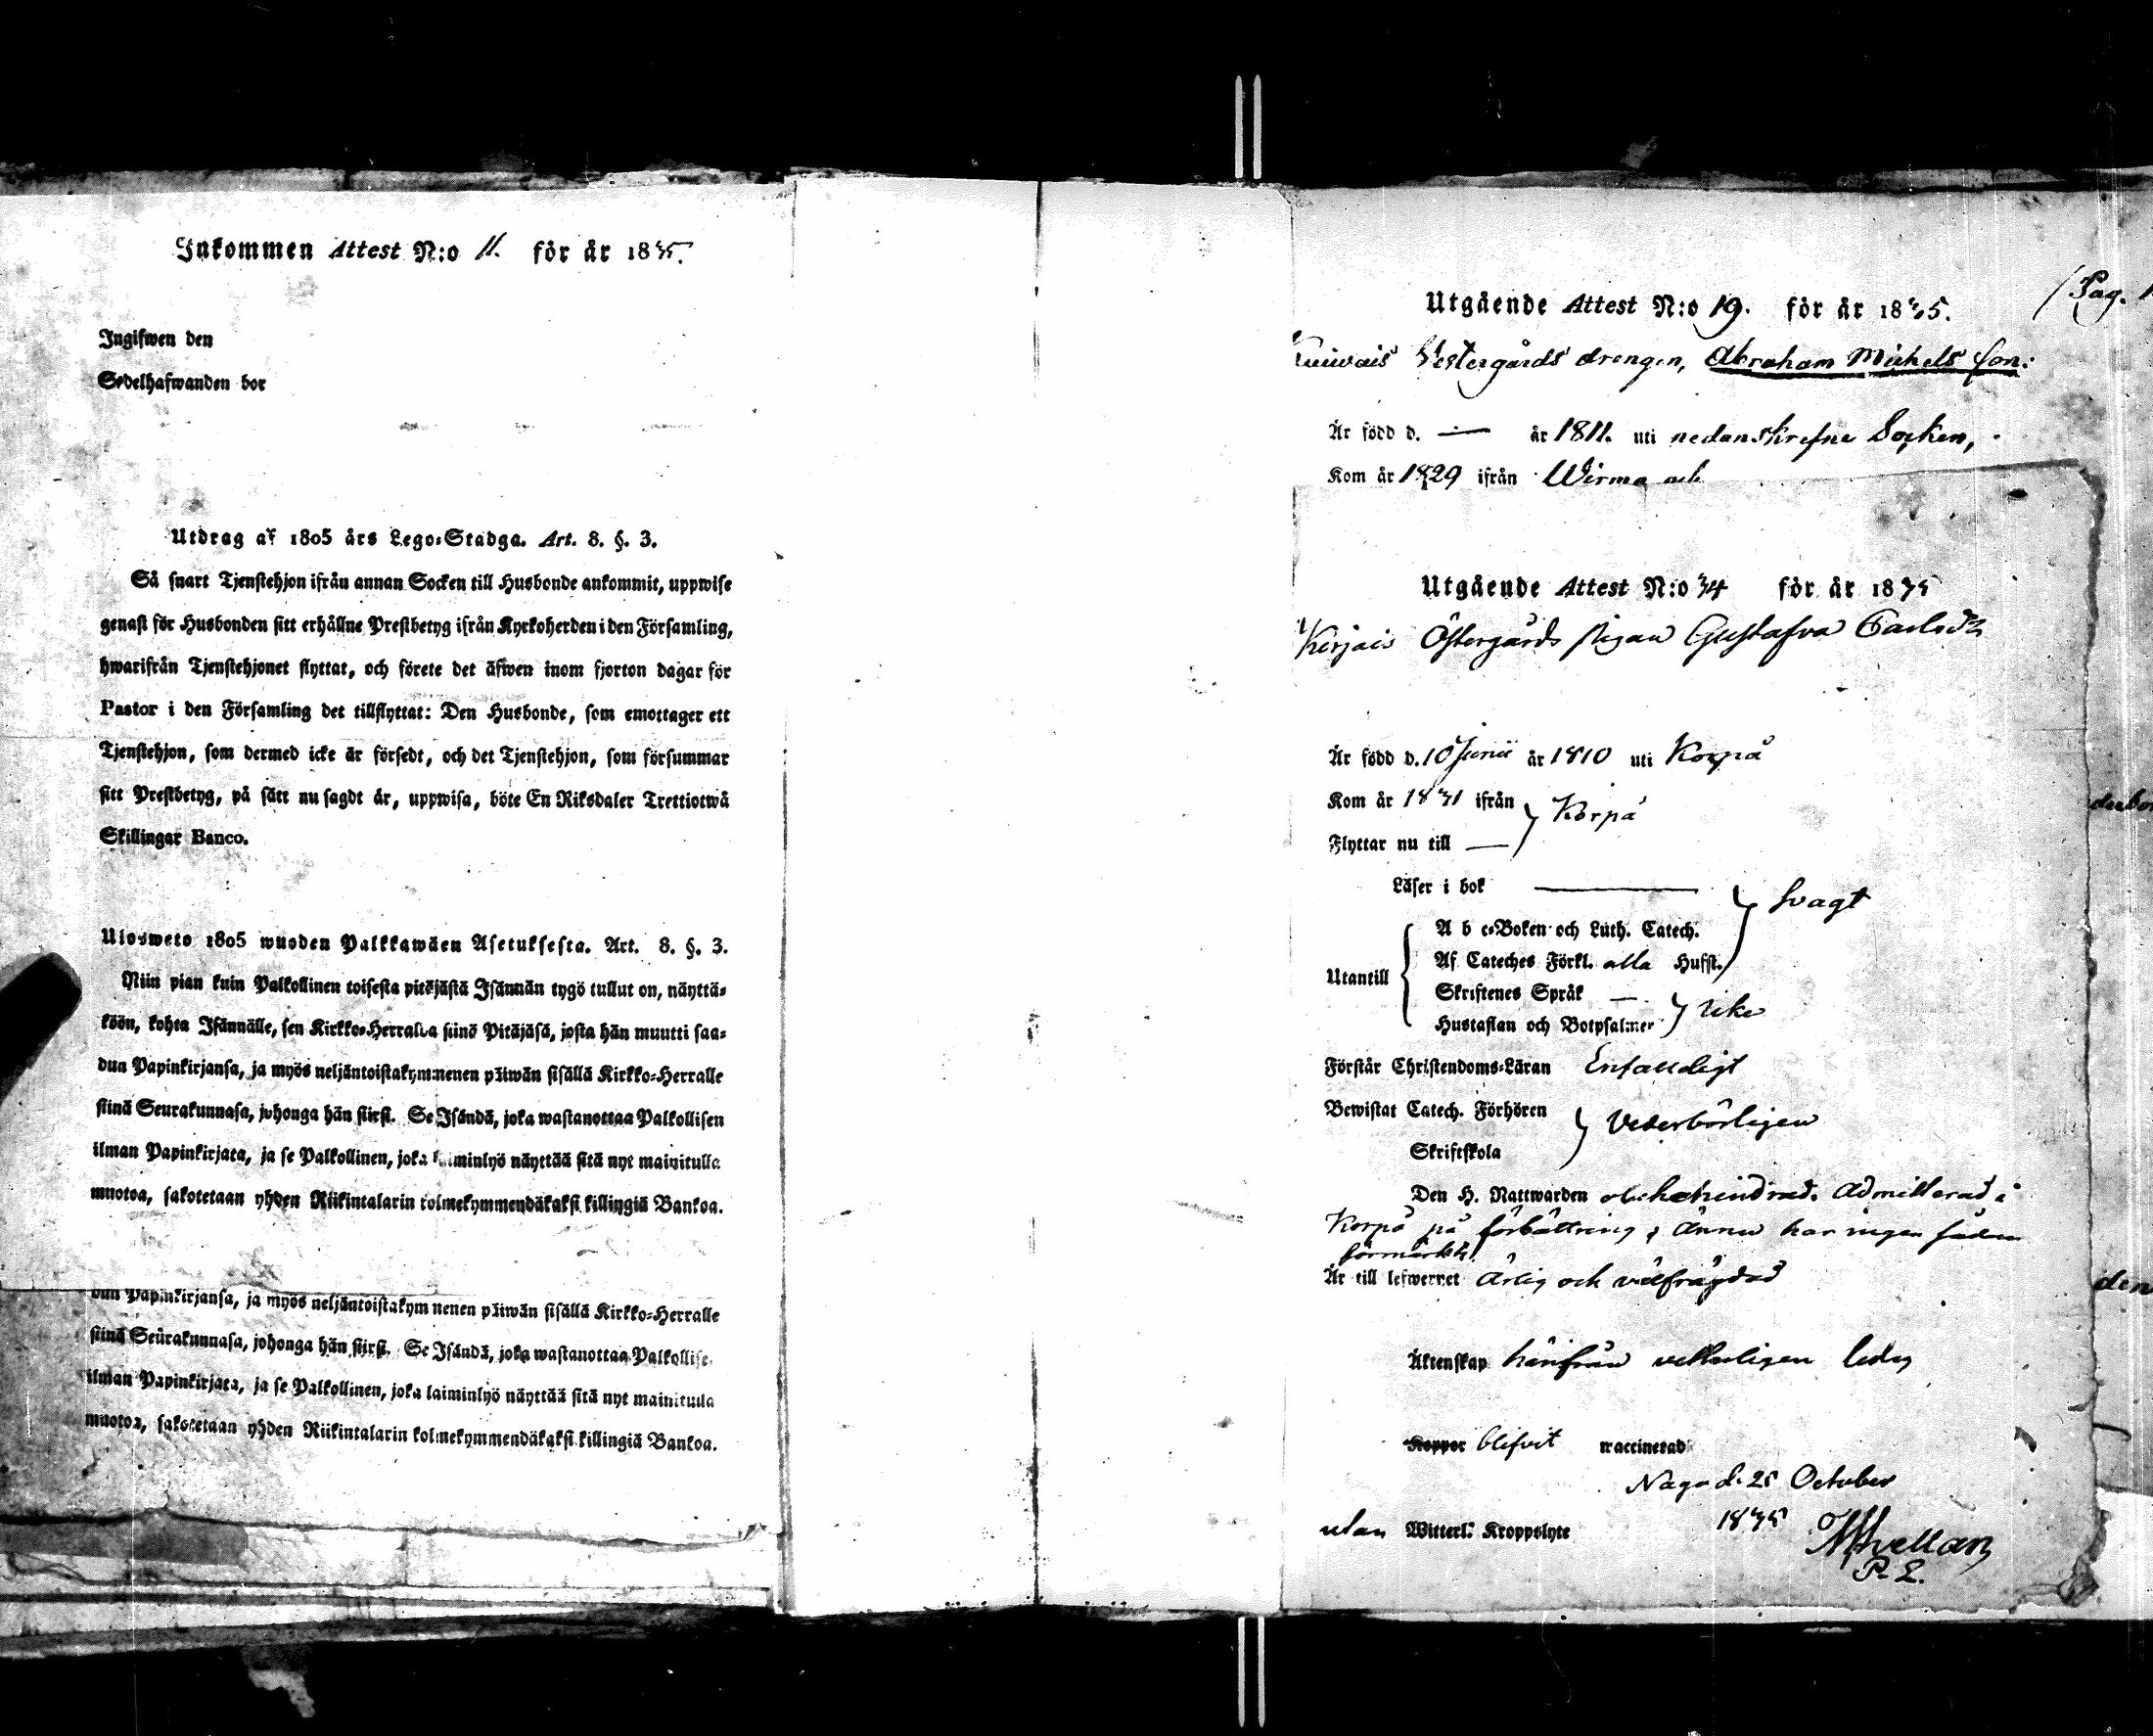 Inkommen Attest N:o 11. för år 1835.
Ingifwen den
Sedelhafwanden bor
Utdrag af 1805 års Lego-Stadga. Art. 8. §. 3.
Så snart Tjenstehjon ifrån annan Socken till Husbonde ankommit, uppwise
genast för Husbonden sitt erhållne Prestbetyg ifrån Kyrkoherden i den Församling,
hwarifrån Tjenstehjonet flyttat, och förete det äfwen inom fjorton dagar för
Pastor i den Församling det tillflyttat: Den Husbonde, som emottager ett
Tjenstehjon, som dermed icke är försedt, och det Tjenstehjon, som försummar
sitt Prestbetyg, på sätt nu sagdt är, uppwisa, böte En Riksdaler Trettiotwå
Skillingar Banco.
Ulosweto 1805 wuoden Palkkawäen Asetuksesta. Art. 8. §. 3.
Niin pian kuin Palkollinen toisesta pitäjästä Isännän tygö tullut on, näyttä-
köön, kohta Isännälle, sen Kirkko-Herralda siinä Pitäjäsä, josta hän muutti saa-
dun Papinkirjansa, ja myös neljäntoistakymmenen päiwän sisällä Kirkko-Herralle
siinä Seurakunnasa, johonga hän siirsi. Se Isändä, joka wastanottaa Palkollisen
ilman Papinkirjata, ja se Palkollinen, joka laiminlyö näyttää sitä nyt mainitulla
muotoa, sakotetaan yhden Riikintalarin kolmekymmendäkaksi killingiä Bankoa.
dun Papinkirjansa, ja myös neljäntoistakymmenen päiwän sisällä Kirkko-Herralle
siinä Seurakunnasa, johonga hän siirsi. Se Isändä, joka wastanottaa Palkollise
ilman Papinkirjata, ja se Palkollinen, joka laiminlyö näyttää sitä nyt mainitulla
muotoa, sakotetaan yhden Riikintalarin kolmekymmendäkaksi killingiä Bankoa.
Pag. 1
Utgående Attest N:o 19. för år 1835.
Westergårds drengen, Abraham Michels son:
Är född d. — år 1811. uti nedanskrefne Socken,
Kom år 1829 ifrån Wirmo och
Utgående Attest N:o 34 för år 1835
Kirjais Östergårds pigan Gustafva Carlsdr
Är född d. 10 Junii år 1810 uti Korpå
Kom år 1831 ifrån } Korpå
Flyttar nu till —
Läser i bok — } svagt
A b c-Boken och Luth. Catech.
Utantill { Af Cateches Förkl. alla Hufst.
Skriftenes Språk — } icke
Hustaflan och Botpsalmer
Förstår Christendoms-Läran Enfalldigt
Bewistat Catech. Förhören } Vederbörligen
Skriftskola
Den H. Nattwarden obehindrad. Admitterad i
Korpå på förbättring, ännu har ingen sådan
förmärkts
Är till lefwernet Ärlig och välfrägdad
Äktenskap härifrån vetterligen ledig
Koppor blifvit waccinerad
Nagu d. 25 October
1835
utan Witterl. Kroppslyte
P. L.
den